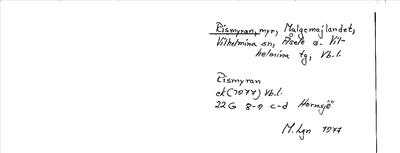 Rismyran, myr, Malgomajlandet,
Vilhelmina sn, Åsele o. Vil-
helmina tg, Vb.l.
Rismyran
ek (1977) Vb.l.
22G 8-9 c-d Hornsjö
M. Lgn 1977